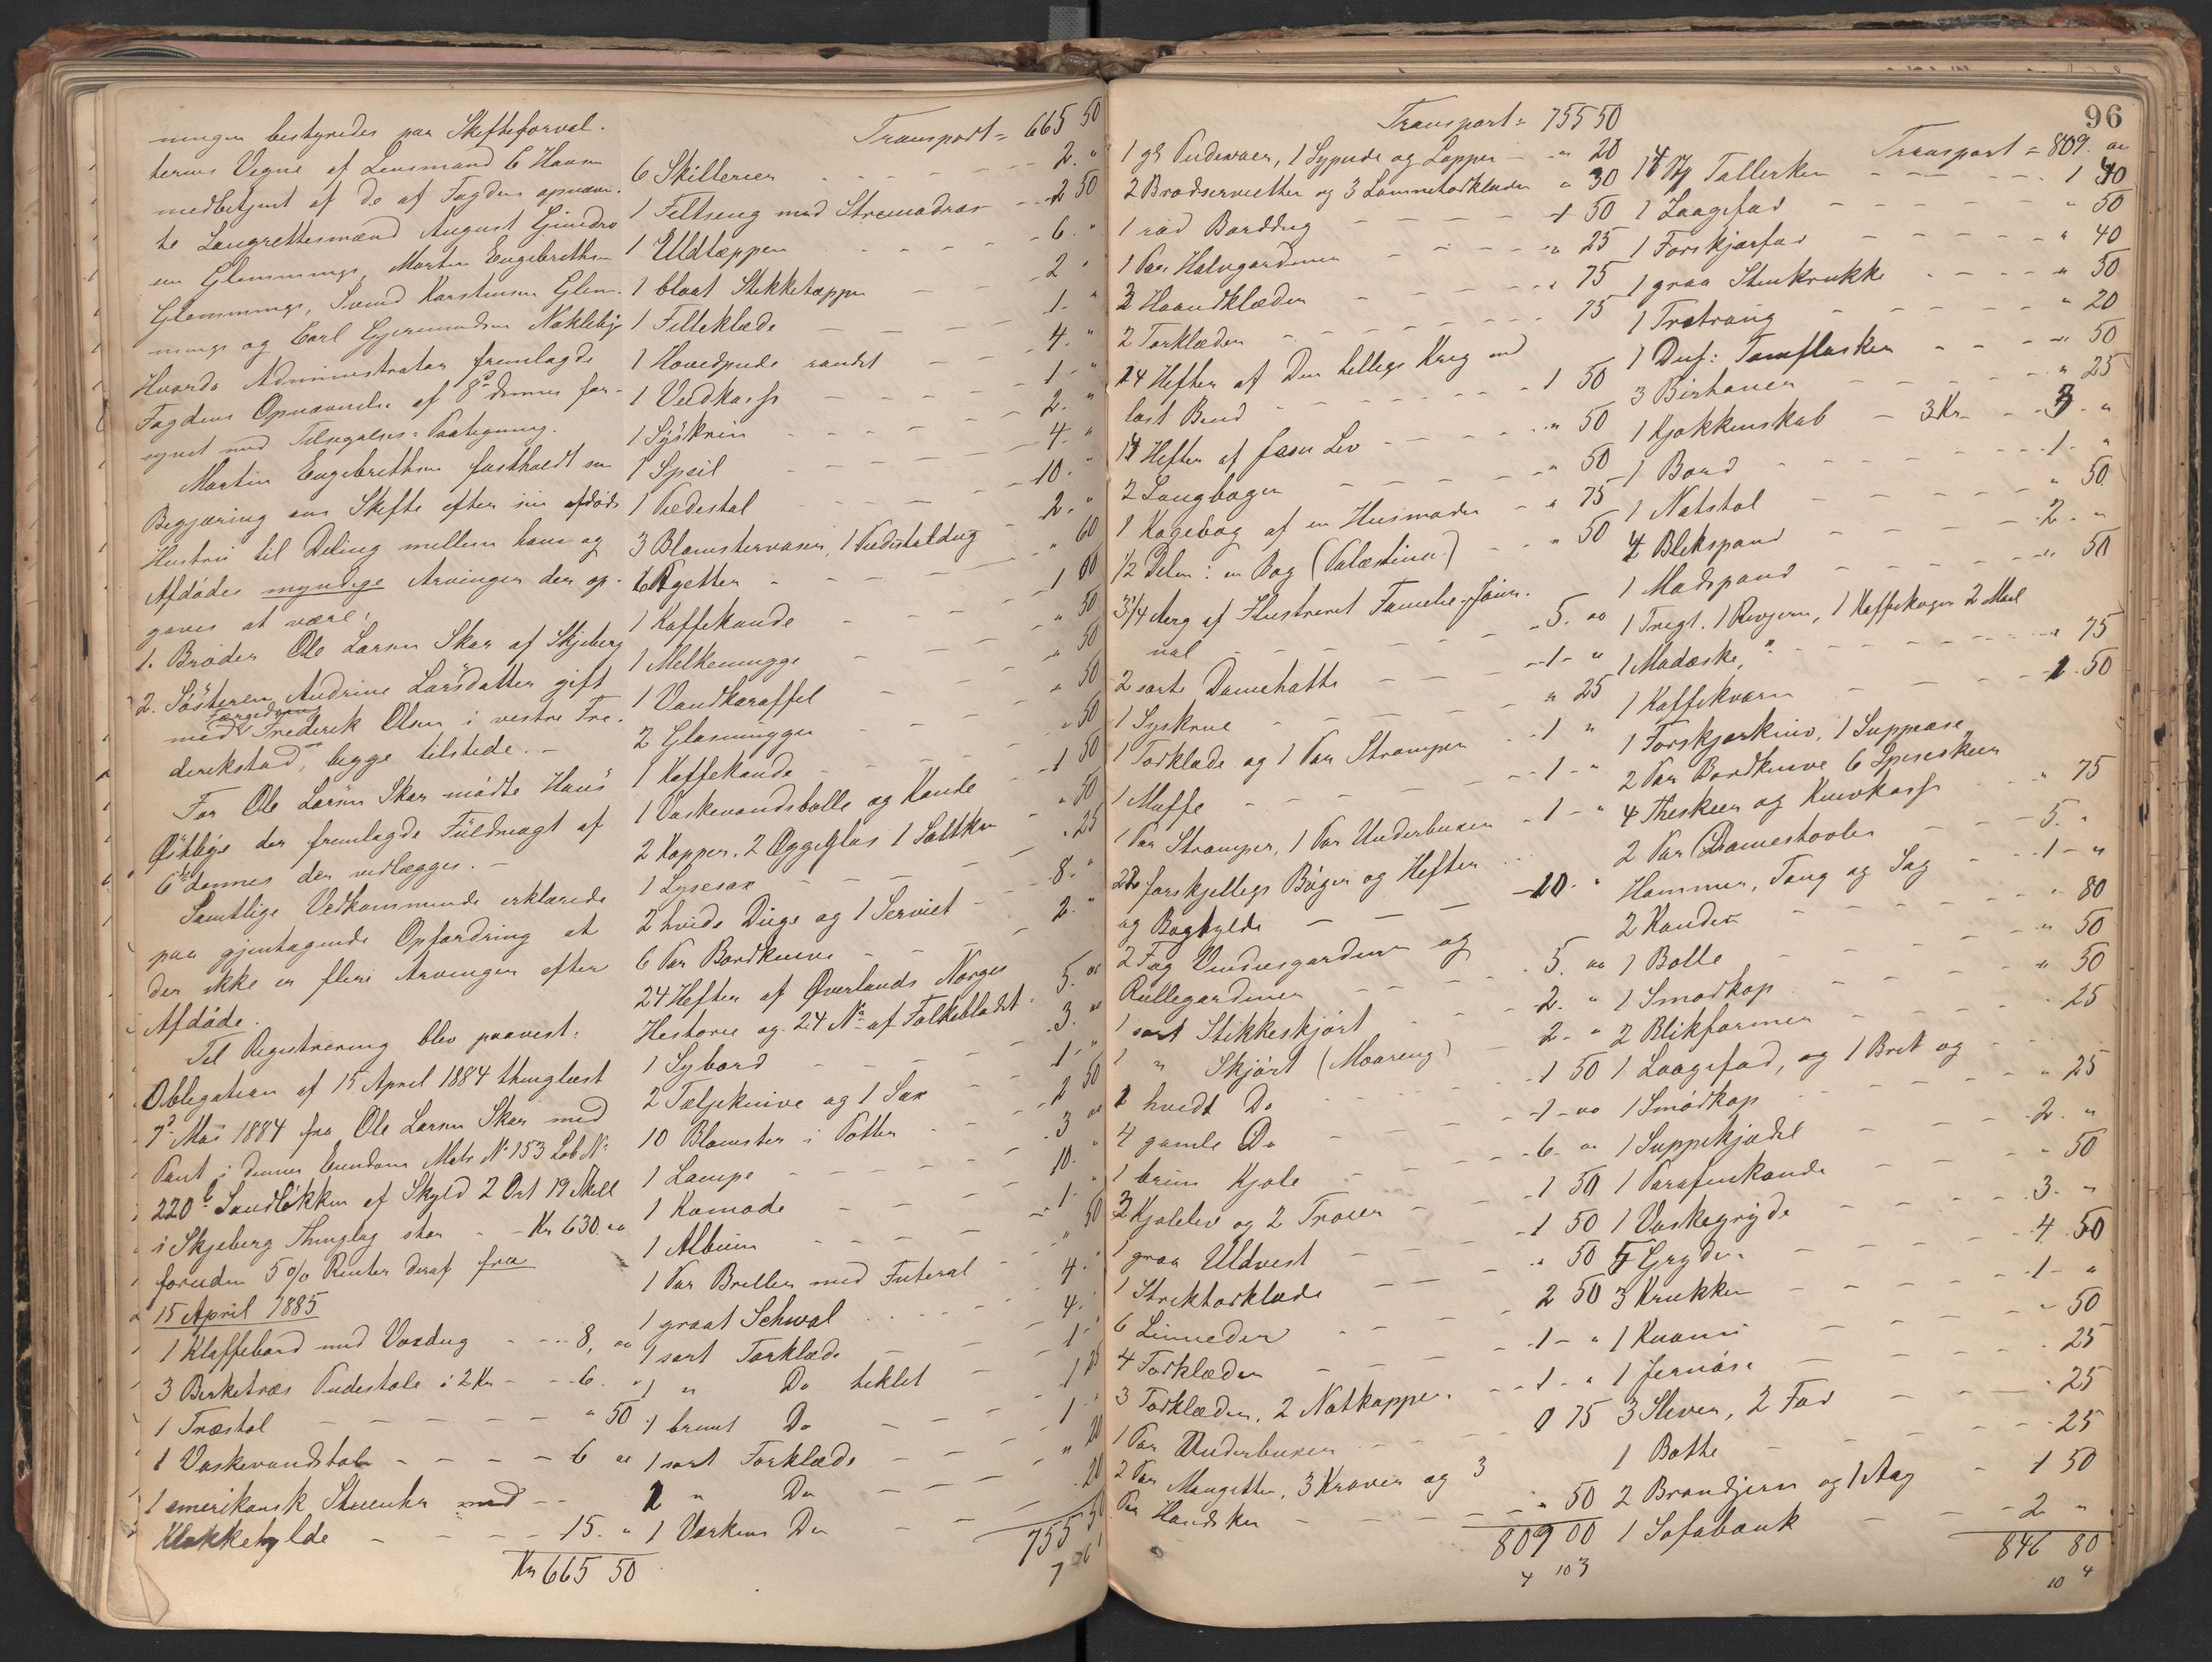 ningen bestyredes paa Skifteforval-
terens Vegne af Lensmand C Hansen
medbetjent af de af Fogden opnævn-
te Laugrettesmænd August Gundro
sen Glemminge, Martin Engebrethsen
Glemminge, Svend Karstensen Glem-
minge og Carl Gjermundsen Nakleby
Hvorda Administrator fremlagde
Fogdens Opnævnelse af 8de dennes for-
synet med Tilsigelses-Paategning.
Martin Engebrethsen fastholdt sin
Begjæring om Skifte efter sin afdøde
Hustru til Deling mellem ham og
Afdødes myndige Arvinger der op-
gaves at være:
1. Broder Ole Larsen Skar af Skjeberg
2. Søsteren Andrine Larsdatter gift
med Frederik Olsen i vestre Fre-
derikstad, begge tilstede. -
For Ole Larsen Skar mødte Hans
Østbye der fremlagde Fuldmagt af
6te dennes der vedlægges. -
Samtlige Vedkommende erklærede
paa gjentagende Opfordring at
der ikke er flere Arvinger efter
Afdøde.
Til Registrering blev paavist:
Obligation af 15 April 1884 thinglæst
7de Mai 1884 fra Ole Larsen Skar med
Pant i dennes Eiendom Matr No 153 Løb No
220b Sandløkken af Skyld 2 Ort 19 Skill
i Skjeberg Thinglag stor - Kr 630 "
foruden 5 % Renter deraf fra
15 April 1885
1 Klaffebord med Voxdug - - - 8, "
3 Birketræs Pudestole i 2 Kr - - 6. "
1 Træstol - - - - - " 50
1 Vaskevandstol - - - - 6 "
1 amerikansk Stueuhr med - -
Klokkehylde - - - - 15. "
Kr 665 50
Transport = 665 50
6 Skillerier - - - 2. "
1 Feltseng med Stremadras - - 2 50
1 Uldtæppe - - - 6. "
1 blaat Stikketæppe - - 2 "
1 Filleklæde - - - 1. "
1 Hovedpude randet - - 4. "
1 Vedkasse - - - 1 - "
1 Syskrin - - - 2. "
1 Speil - - - 4. "
1 Piedestal - - - 10. "
3 Blomstervaser, 1 Piedestaldug - 2. "
6 Asjetter - - - " 60
1 Kaffekande - - - 1 00
1 Melkemugge - - - " 50
1 Vandkaraffel - - - " 50
2 Glasmugger - - - " 50
1 Kaffekande - - - " 50
1 Vaskevandsbolle og Kande - 1 50
2 Kopper, 2 Æggeglas 1 Saltkar - " 50
1 Lysesax - - - " 25
2 hvide Duge og 1 Serviet - 8. "
6 Par Bordknive - - 2. "
24 Hefter af Øverlands Norges
Historie og 24 No af Folkebladet - 5. "
1 Sybord - - - 3. "
2 Tælgeknive og 1 Sax - 1 - "
10 Blomster i Potter - - 2 50
1 Lampe - - - 3 "
1 Komode - - - 10. "
1 Album - - - 1 - "
1 Par Briller med Futeral - " 50
1 graat Schwal - - - 4. "
1 sort Tørklæde - - 4. "
1 " Do heklet - 1 - "
1 brunt Do - - 1 25
1 sort Forklæde - - 1 - "
1 " Do - - " 20
1 Værkens Do - - " 20
755 50
Transport = 755 50
1 gl Pudevaer, 1 Sypude og Lopper - " 20
2 Brødservietter og 3 Lommetørklæder " 30
1 rød Borddug - - - 1 50
1 Par Halvgardiner - - " 25
3 Haandklæder - - - " 75
2 Tørklæder - - - " 75
14 Hefter af Den hellige Krig med
løst Bind - - - 1 50
14 Hefter af Jesu Lev - - " 50
2 Sangbøger - - - " 50
1 Kogebog af en Husmoder - " 75
1/2 Delen : en Bog (Palæstina) - " 50
3 1/4 Aarg af Illustreret Familie-Jour-
nal - - - 5. "
2 sorte Damehatte - - 1 - "
1 Syskrue - - - " 25
1 Tørklæde og 1 Par Strømper - 1 "
1 Muffe - - - 1 - "
1 Par Strømper, 1 Par Underbuxer - 1 - "
22 forskjellige Bøger og Hefter
og Boghylde - - - 10. "
2 Fag Vinduesgardiner og
Rullegardiner - - 5. "
1 sort Stikkeskjørt - - 2. "
1 " Skjørt (Moareng) - 2. "
1 hvidt Do - - 1 50
4 gamle Do - - - 1 - "
1 brun Kjole - - - 6. "
3 Kjoleliv og 2 Trøier - 1 50
1 graa Uldvest - - - 1 50
1 Striktørklæde - - " 50
6 Linneder - - - 2 50
4 Forklæder - - - 1 - "
3 Tørklæder, 2 Natkapper - 1 - "
1 Par Underbuxer - - 0 75
2 Par Mangetter, 3 Kraver og 3
Par Handsker - - - " 50
809 00
4 103
96
Transport = 809. "
14 Tallerken - - - 1 40
1 Laagefad - - - " 50
1 Forskjærfad - - - " 40
1 graa Stenkrukke - - " 50
1 Trætraug - - - " 20
1 Dus: Tomflasker - - " 50
3 Birhaner - - - " 25
1 Kjøkkenskab - 3 Kr - 3 - "
1 Bord - - - 1 - "
1 Natstol - - - " 50
4 Blikspand - - - 2. "
1 Madspand - - - " 50
1 Tragt, 1 Rivjern, 1 Kaffekoger 2 Maal
1 Madæske, " - - - " 75
1 Kaffekværn - - - 1. 50
1 Forskjærkniv, 1 Suppøse
2 Par Bordknive 6 Spiseskeer
4 Theskeer og Knivkasse - " 75
2 Par Damestøvler - - 5. "
Hammer, Tang og Sag - - 1 - "
2 Kander - - - " 80
1 Bolle - - - " 50
1 Smørkop - - - " 50
2 Blikformer - - - " 25
1 Laagefad, og 1 Bret og
1 Smørkop - - - " 25
1 Suppekjedel - - - 2. "
1 Parafinkande - - " 50
1 Vaskegryde - - - 3. "
5 Gryder - - - 4 50
3 Krukker - - - 1 - "
1 Kværn - - - " 50
1 Jernøse - - - " 25
3 Slever, 2 Fad - - " 25
1 Bøtte - - - " 25
2 Brandjern og 1 Aag - 1 50
1 Sofabænk - - - 2 "
846 80
10 4